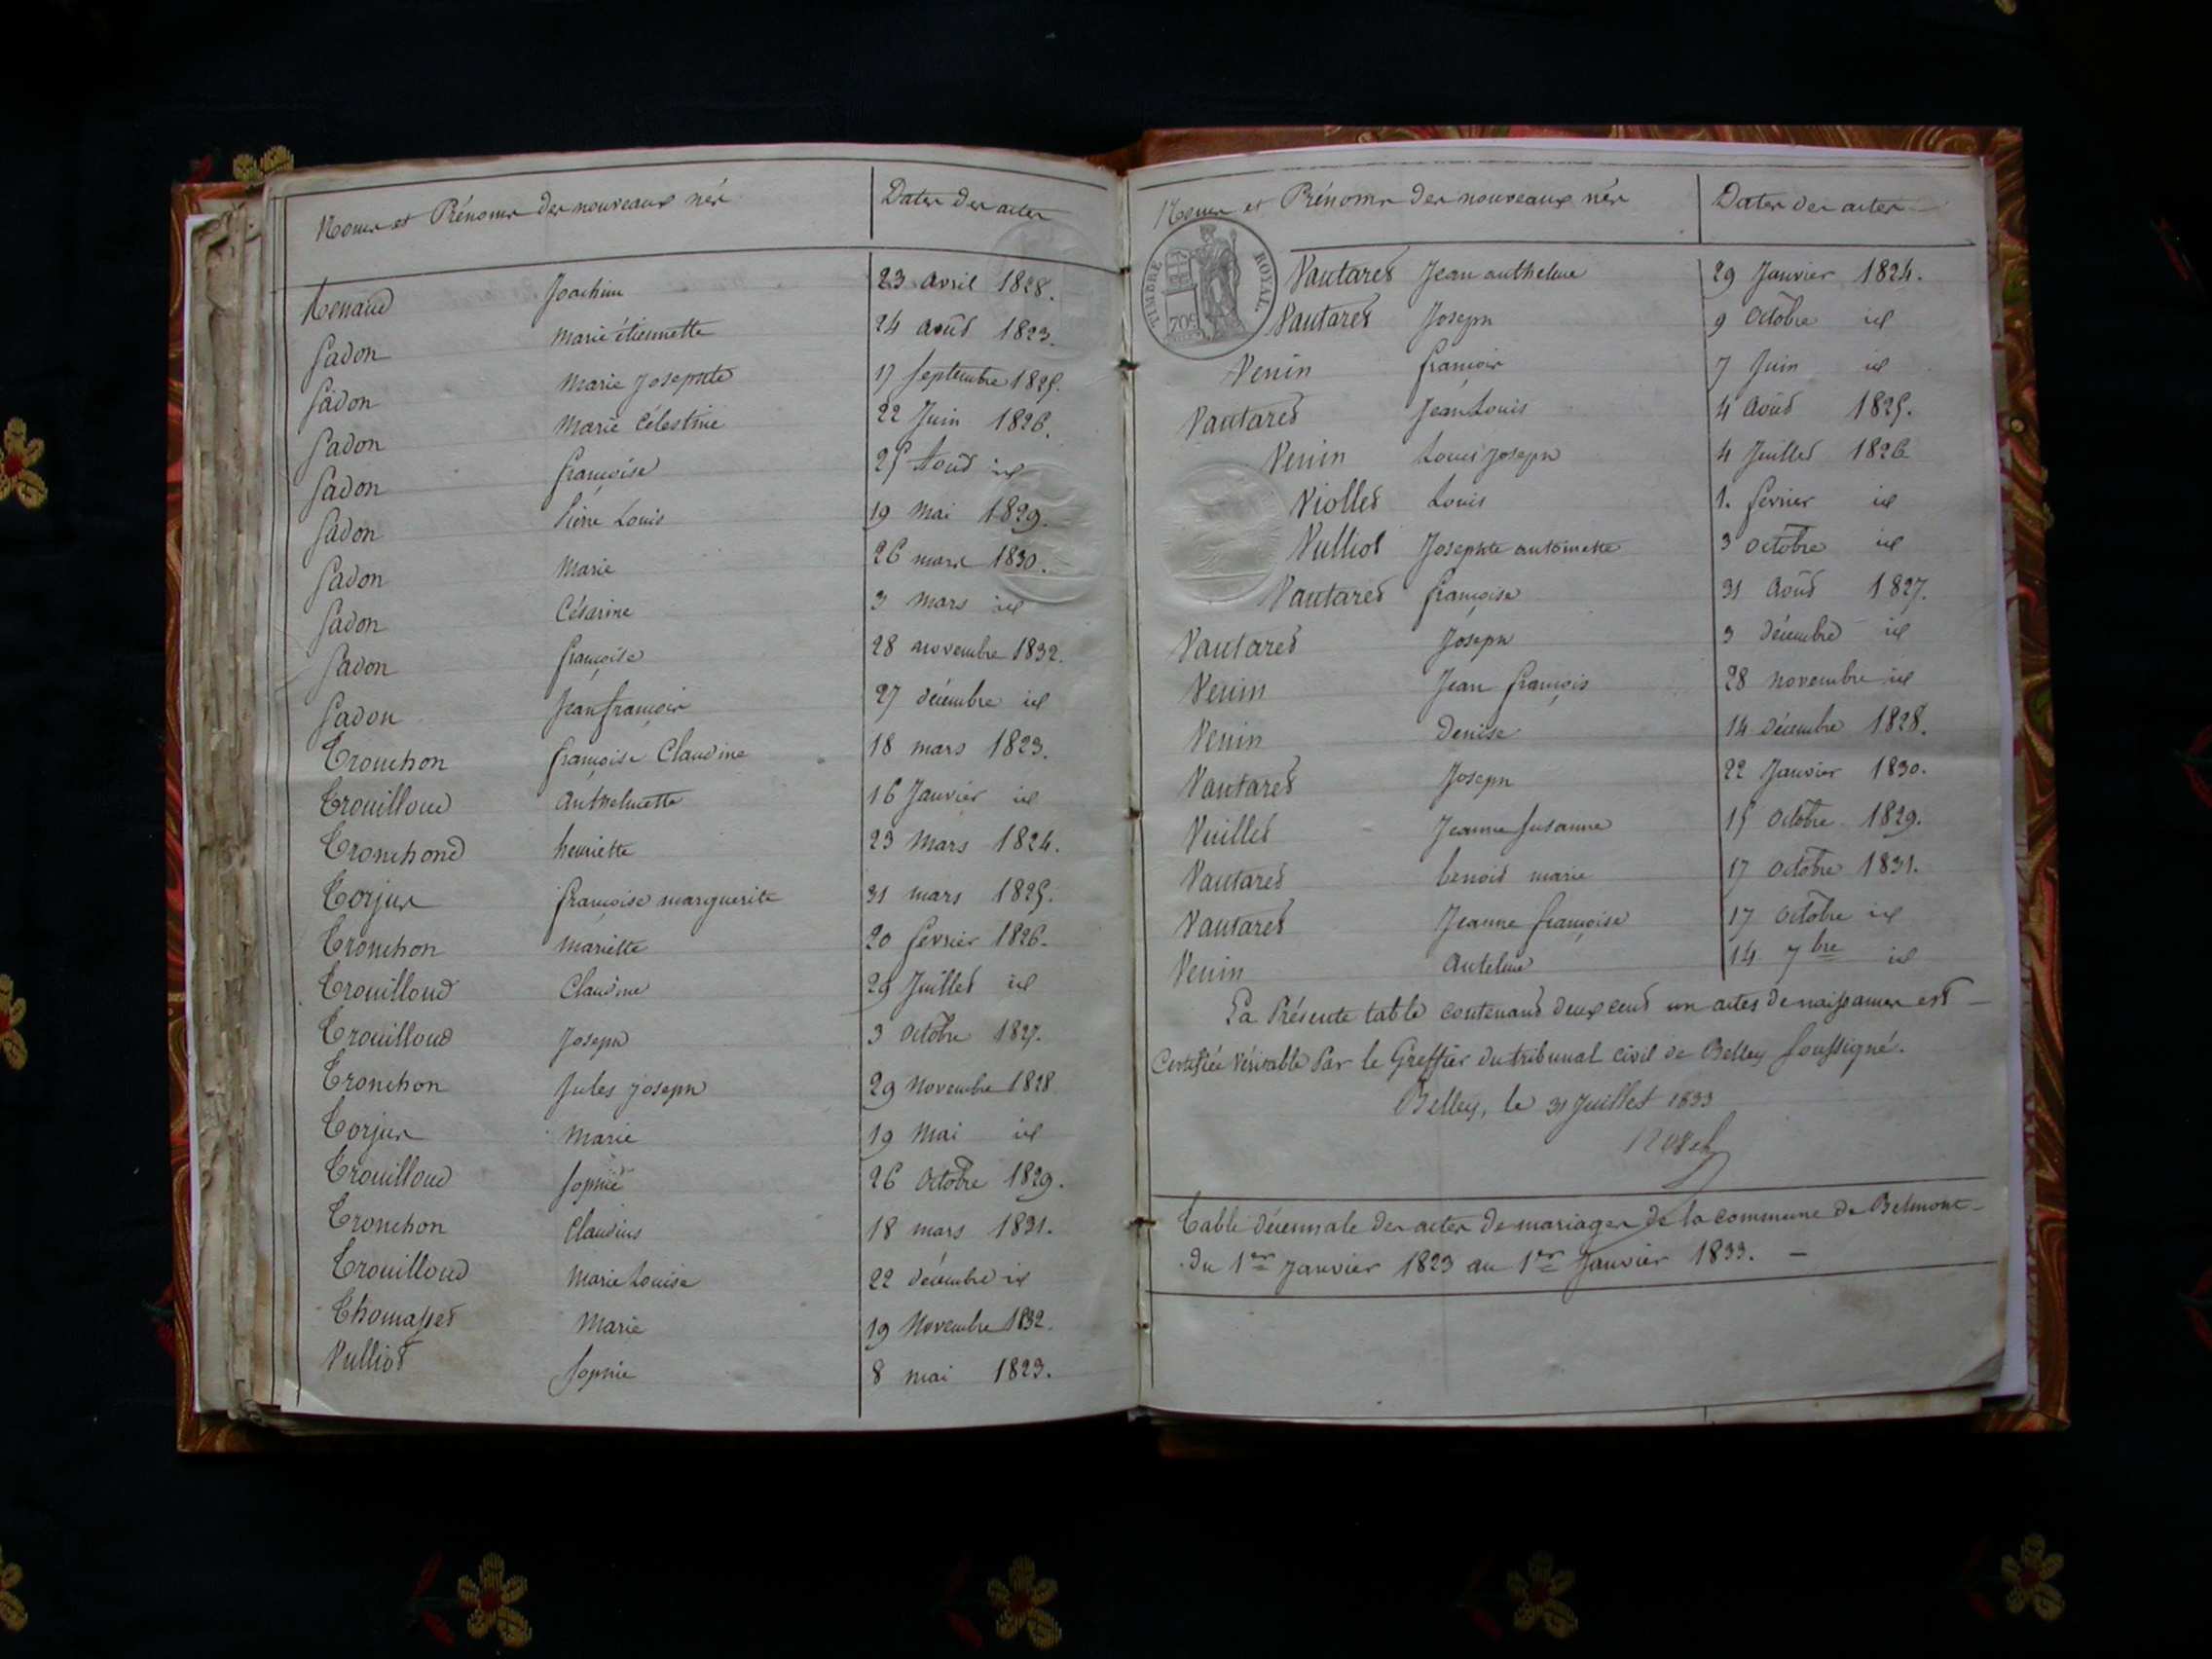 Noms et Prénoms des nouveaux nés Dates des actes
Renaud Joachim 23 avril 1828.
Sadon Marie étiennette 24 août 1823.
Sadon Marie Josephte 17 septembre 1825.
Sadon Marie Célestine 22 Juin 1826.
Sadon françoise 25 Août id
Sadon Pierre Louis 19 Mai 1829.
Sadon Marie 26 mars 1830.
Sadon Césarine 3 Mars id
Sadon françoise 28 novembre 1832.
Sadon Jean françois 27 décembre id
Tronchon françoise Claudine 18 mars 1823.
Trouilloud Anthelmette 16 Janvier id
Tronchond henriette 23 Mars 1824.
Torjus françoise marguerite 31 mars 1825.
Tronchon Mariette 20 février 1826.
Trouilloud Claudine 29 Juillet id
Trouilloud Joseph 3 Octobre 1827.
Tronchon Jules Joseph 29 Novembre 1828
Torjus Marie 19 Mai id
Trouilloud Sophie 26 Octobre 1829.
Tronchon Claudius 18 mars 1831.
Trouilloud Marie Louise 22 décembre id
Thomasset Marie 19 Novembre 1832.
Vulliot Sophie 8 mai 1823.
Noms et Prénoms des nouveaux nés Dates des actes
TIMBRE ROYAL.
Vautaret Jean anthelme 29 Janvier 1824.
Vautaret Joseph 9 Octobre id
Venin françois 7 Juin id
Vautaret Jean Louis 4 Août 1825.
Venin Louis Joseph 4 Juillet 1826
Viollet Louis 1. février id
Vulliot Josephte antoinette 3 octobre id
Vautaret françoise 31 Août 1827.
Vautaret Joseph 3 décembre id
Venin Jean françois 28 novembre id
Venin Denise 14 décembre 1828.
Vautaret Joseph 22 Janvier 1830.
Vuillet Jeanne Susanne 15 Octobre 1829.
Vautaret benoit marie 17 Octobre 1831.
Vautaret Jeanne françoise 17 Octobre id
Venin Antelme 14 7bre id
La Présente table contenant deux cent un actes de naissances est
Certifiée Véritable Par le Greffier du tribunal civil de Belley Soussigné.
Belley, le 31 Juillet 1833
Table décennale des actes de mariages de la commune de Belmont
du 1er Janvier 1823 au 1er Janvier 1833.